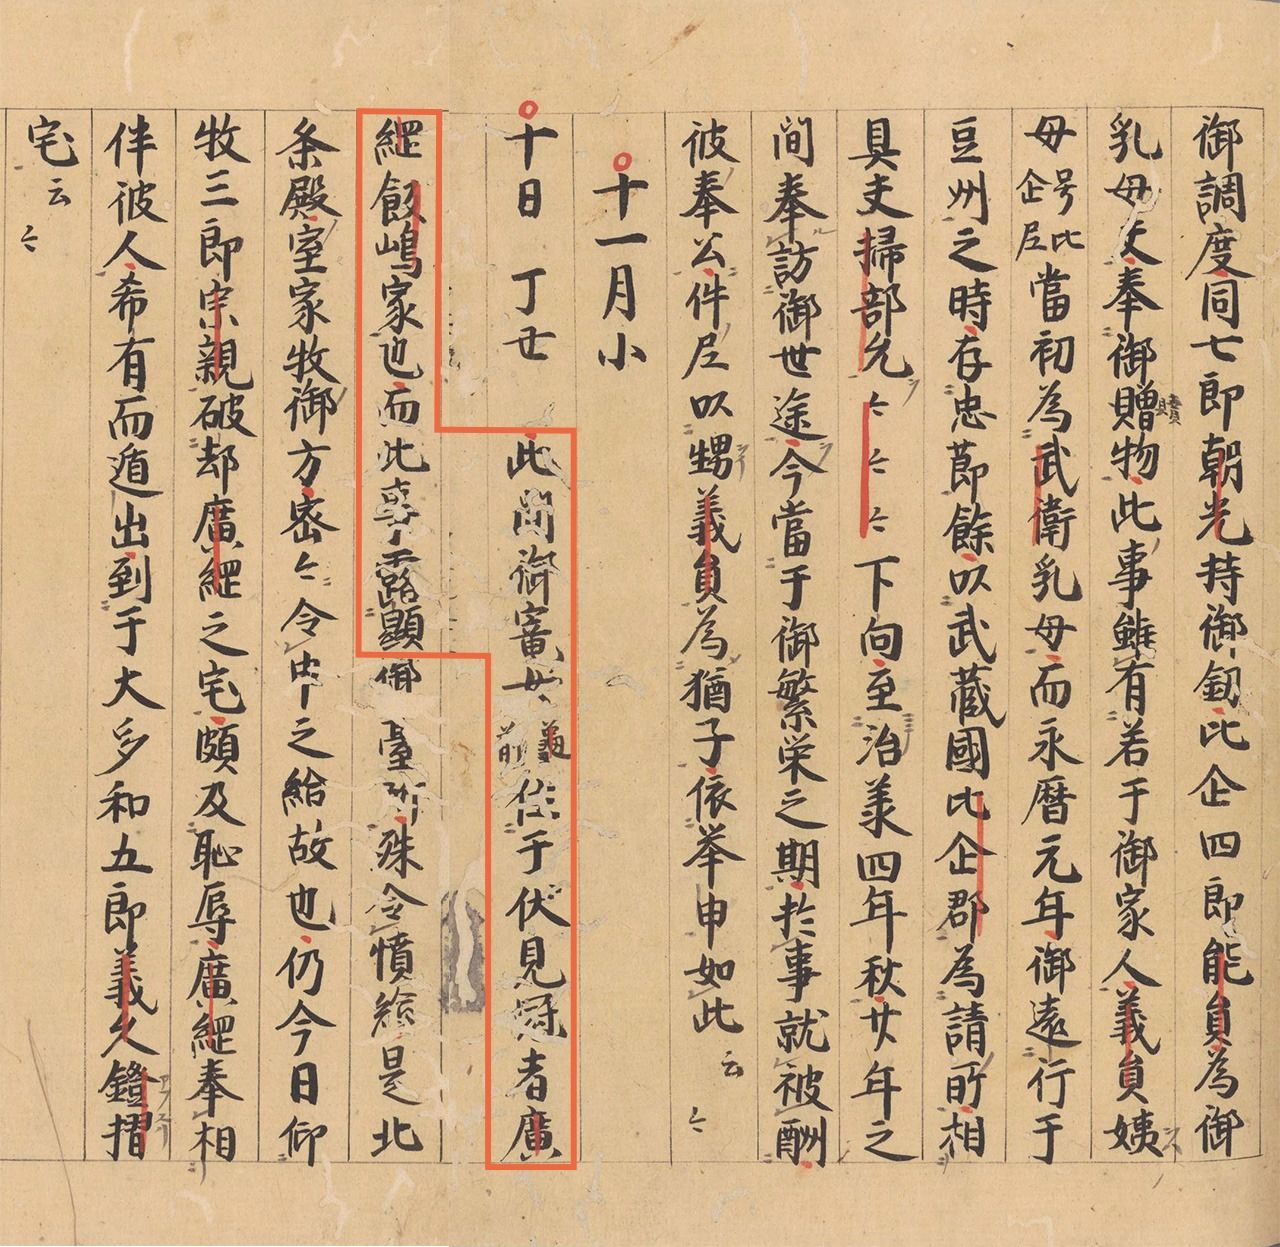 御調度同七郎朝光持御釼比企四郎能員為御
乳母夫奉御贈物此事雖有若于御家人義員姨
母号比企尼當初為武衛乳母而永暦元年御遠行于
豆州之時存忠莭餘以武蔵國比企郡為請所相
具夫掃部允〻〻〻下向至治羕四年秋廿年之
間奉訪御世途今當于御繁栄之期於事就被酬
彼奉公件尼以甥義員為猶子依举申如此云〻
十一月小
十日丁丑此間御寵女前住于伏見冠者廣
綱飯嶋家也而此事露顯御臺所殊令憤給是北
条殿室家牧御方密〻令申之給故也仍今日仰
牧三郎宗親破却廣綱之宅頗及恥辱廣綱奉相
伴彼人希有而遁出到于大多和五郎義久鐙摺
宅云〻